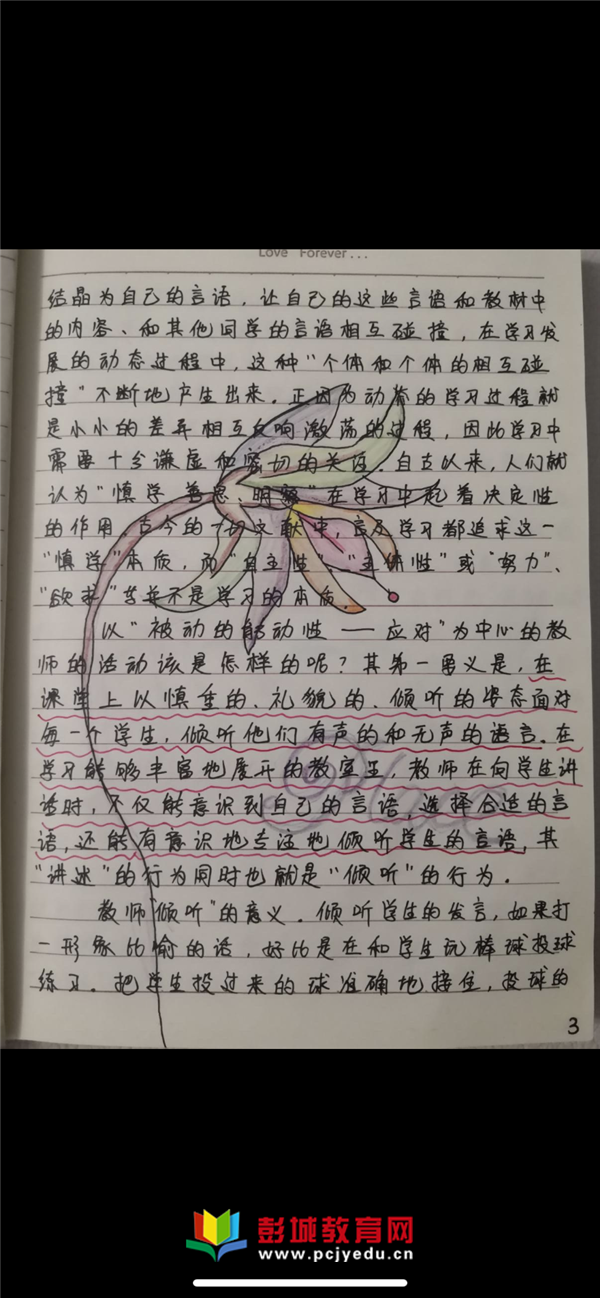 Love Forever...
结晶为自己的言语，让自己的这些言语和教材中
的内容、和其他同学的言语相互碰撞，在学习发
展的动态过程中，这种“个体和个体的相互碰
撞”不断地产生出来。正因为动态的学习过程就
是小小的差异相互反响激荡的过程，因此学习中
需要十分谦虚和密切的关系。自古以来，人们就
认为“慎学、善思、明察”在学习中起着决定性
的作用，古今的一切文献中，言及学习都追求这一
“慎学”本质，而“自主性”、“主体性”或“努力”、
“欲求”等并不是学习的本质。
以“被动的能动性——应对”为中心的教
师的活动该是怎样的呢？其第一要义是，在
课堂上以慎重的、礼貌的、倾听的姿态面对
每一个学生，倾听他们有声的和无声的语言。在
学习能够丰富地展开的教室里，教师在向学生讲
话时，不仅能意识到自己的言语，选择合适的言
语，还能有意识地专注地倾听学生的言语，其
“讲述”的行为同时也就是“倾听”的行为。
教师“倾听”的意义。倾听学生的发言，如果打
一形象比喻的话，好比是在和学生玩棒球投球
练习。把学生投过来的球准确地接住，投球的
3
彭城教育网
www.pcjyedu.cn